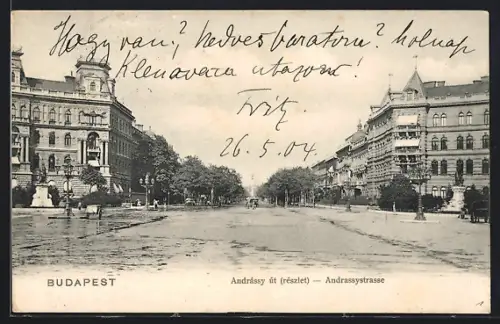 Hogy van? kedves barátom? holnap
Klenavara utazom!
Fritz
26.5.04
BUDAPEST
Andrássy út (részlet) — Andrassystrasse